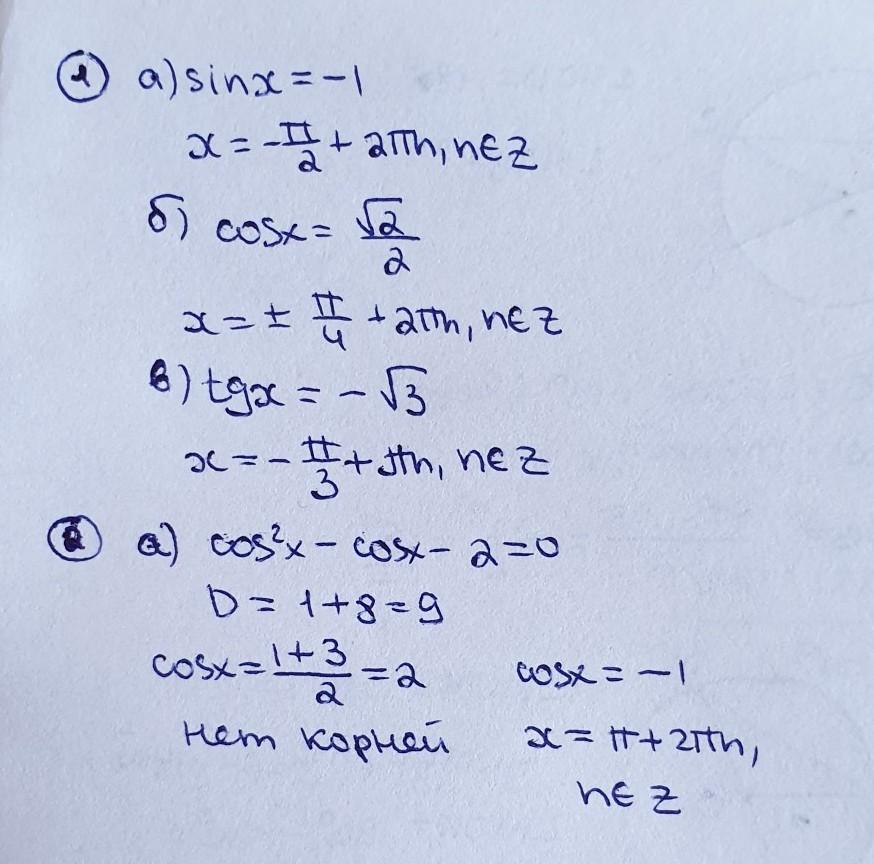 ① а) sinx = -1
x = -π/2 + 2πn, n∈Z
б) cosx = √2/2
x = ± π/4 + 2πn, n∈Z
в) tgx = -√3
x = -π/3 + πn, n∈Z
② а) cos²x - cosx - 2 = 0
D = 1+8=9
cosx = (1+3)/2 = 2 cosx = -1
нет корней x = π+2πn,
n∈Z